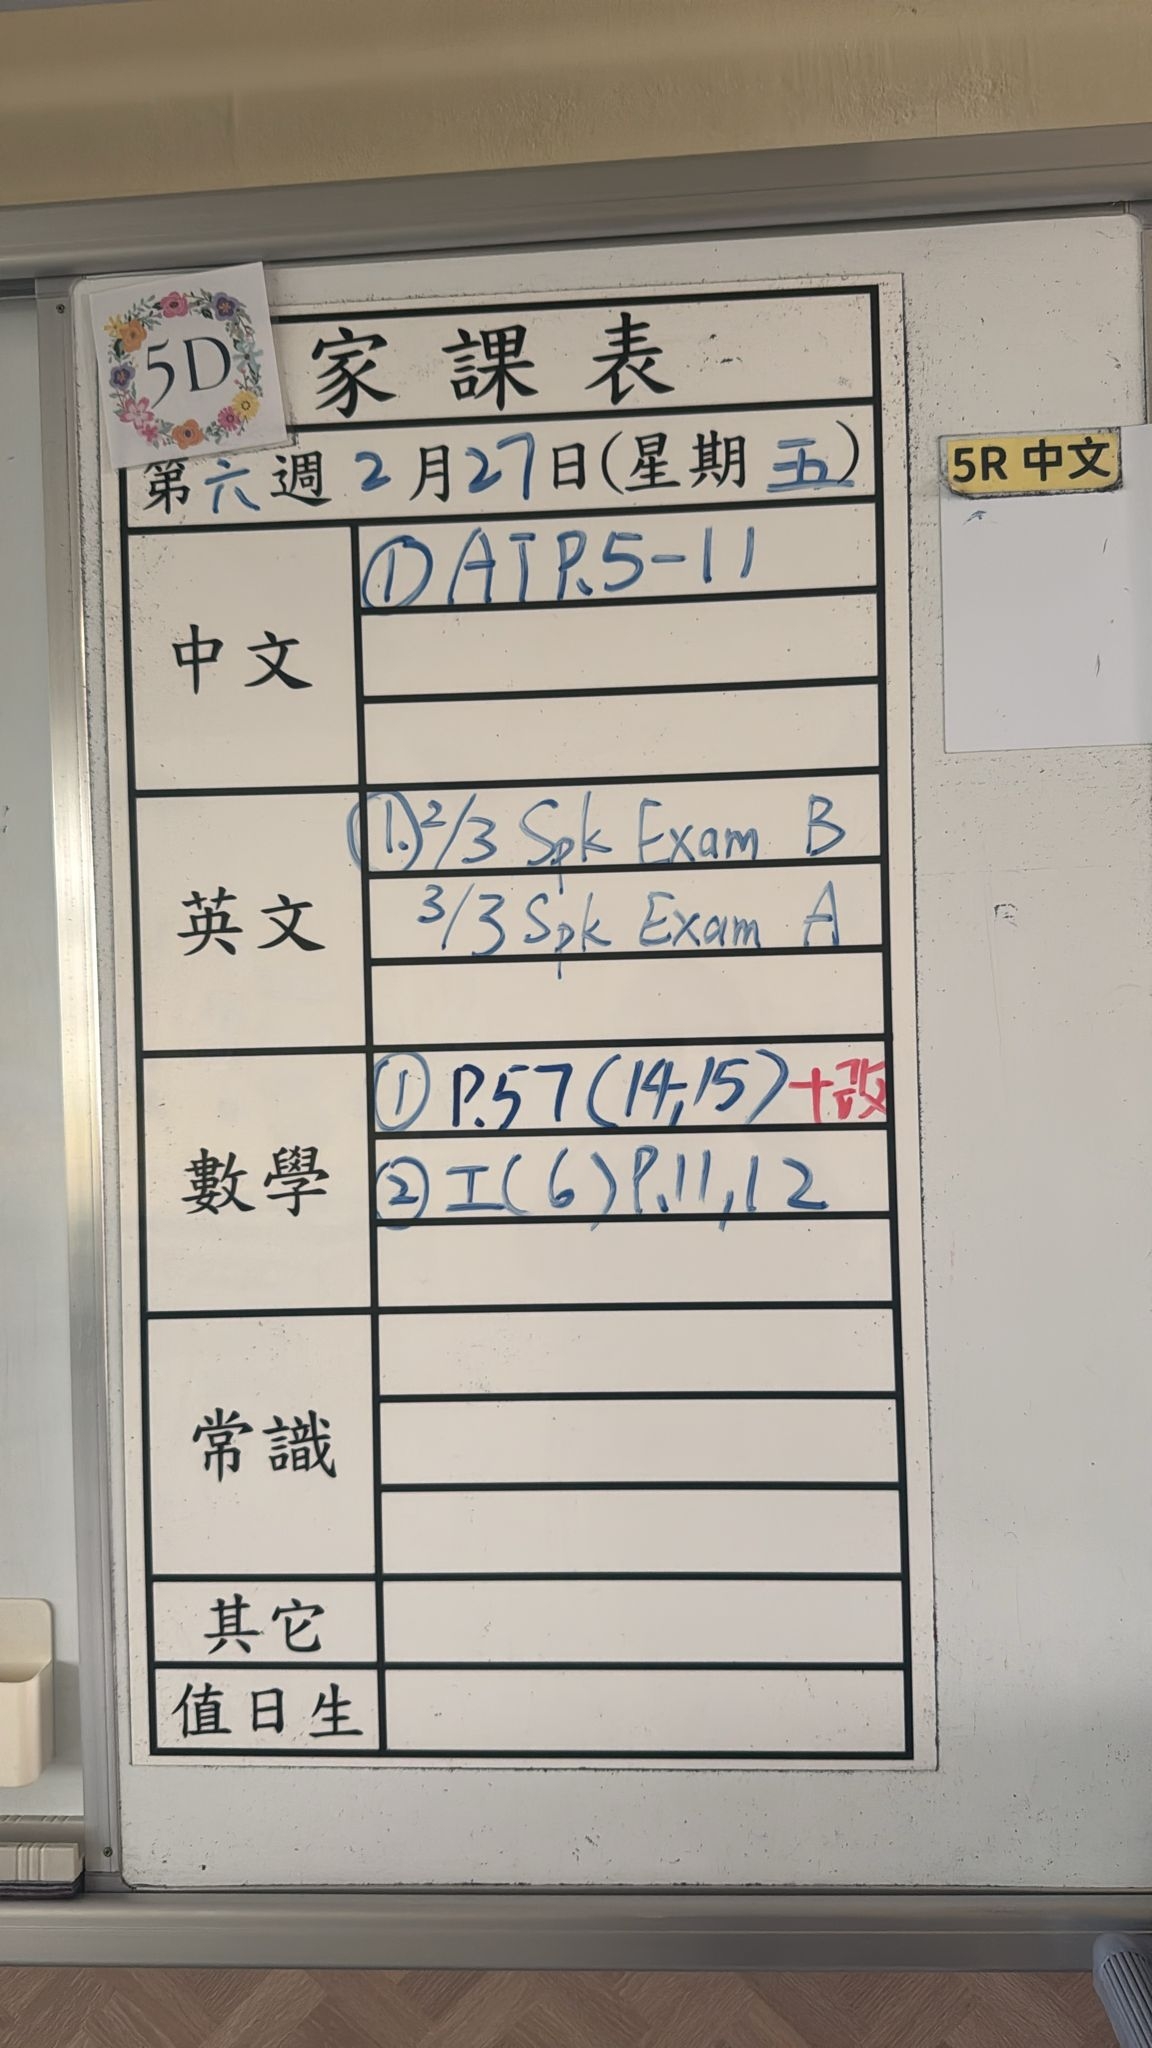 5D
家課表
第六週 2月27日(星期五)
5R 中文
中文
① AT P.5-11
英文
①. 2/3 Spk Exam B
3/3 Spk Exam A
數學
① P.57 (14,15)+改
② 工(6) P.11,12
常識
其它
值日生